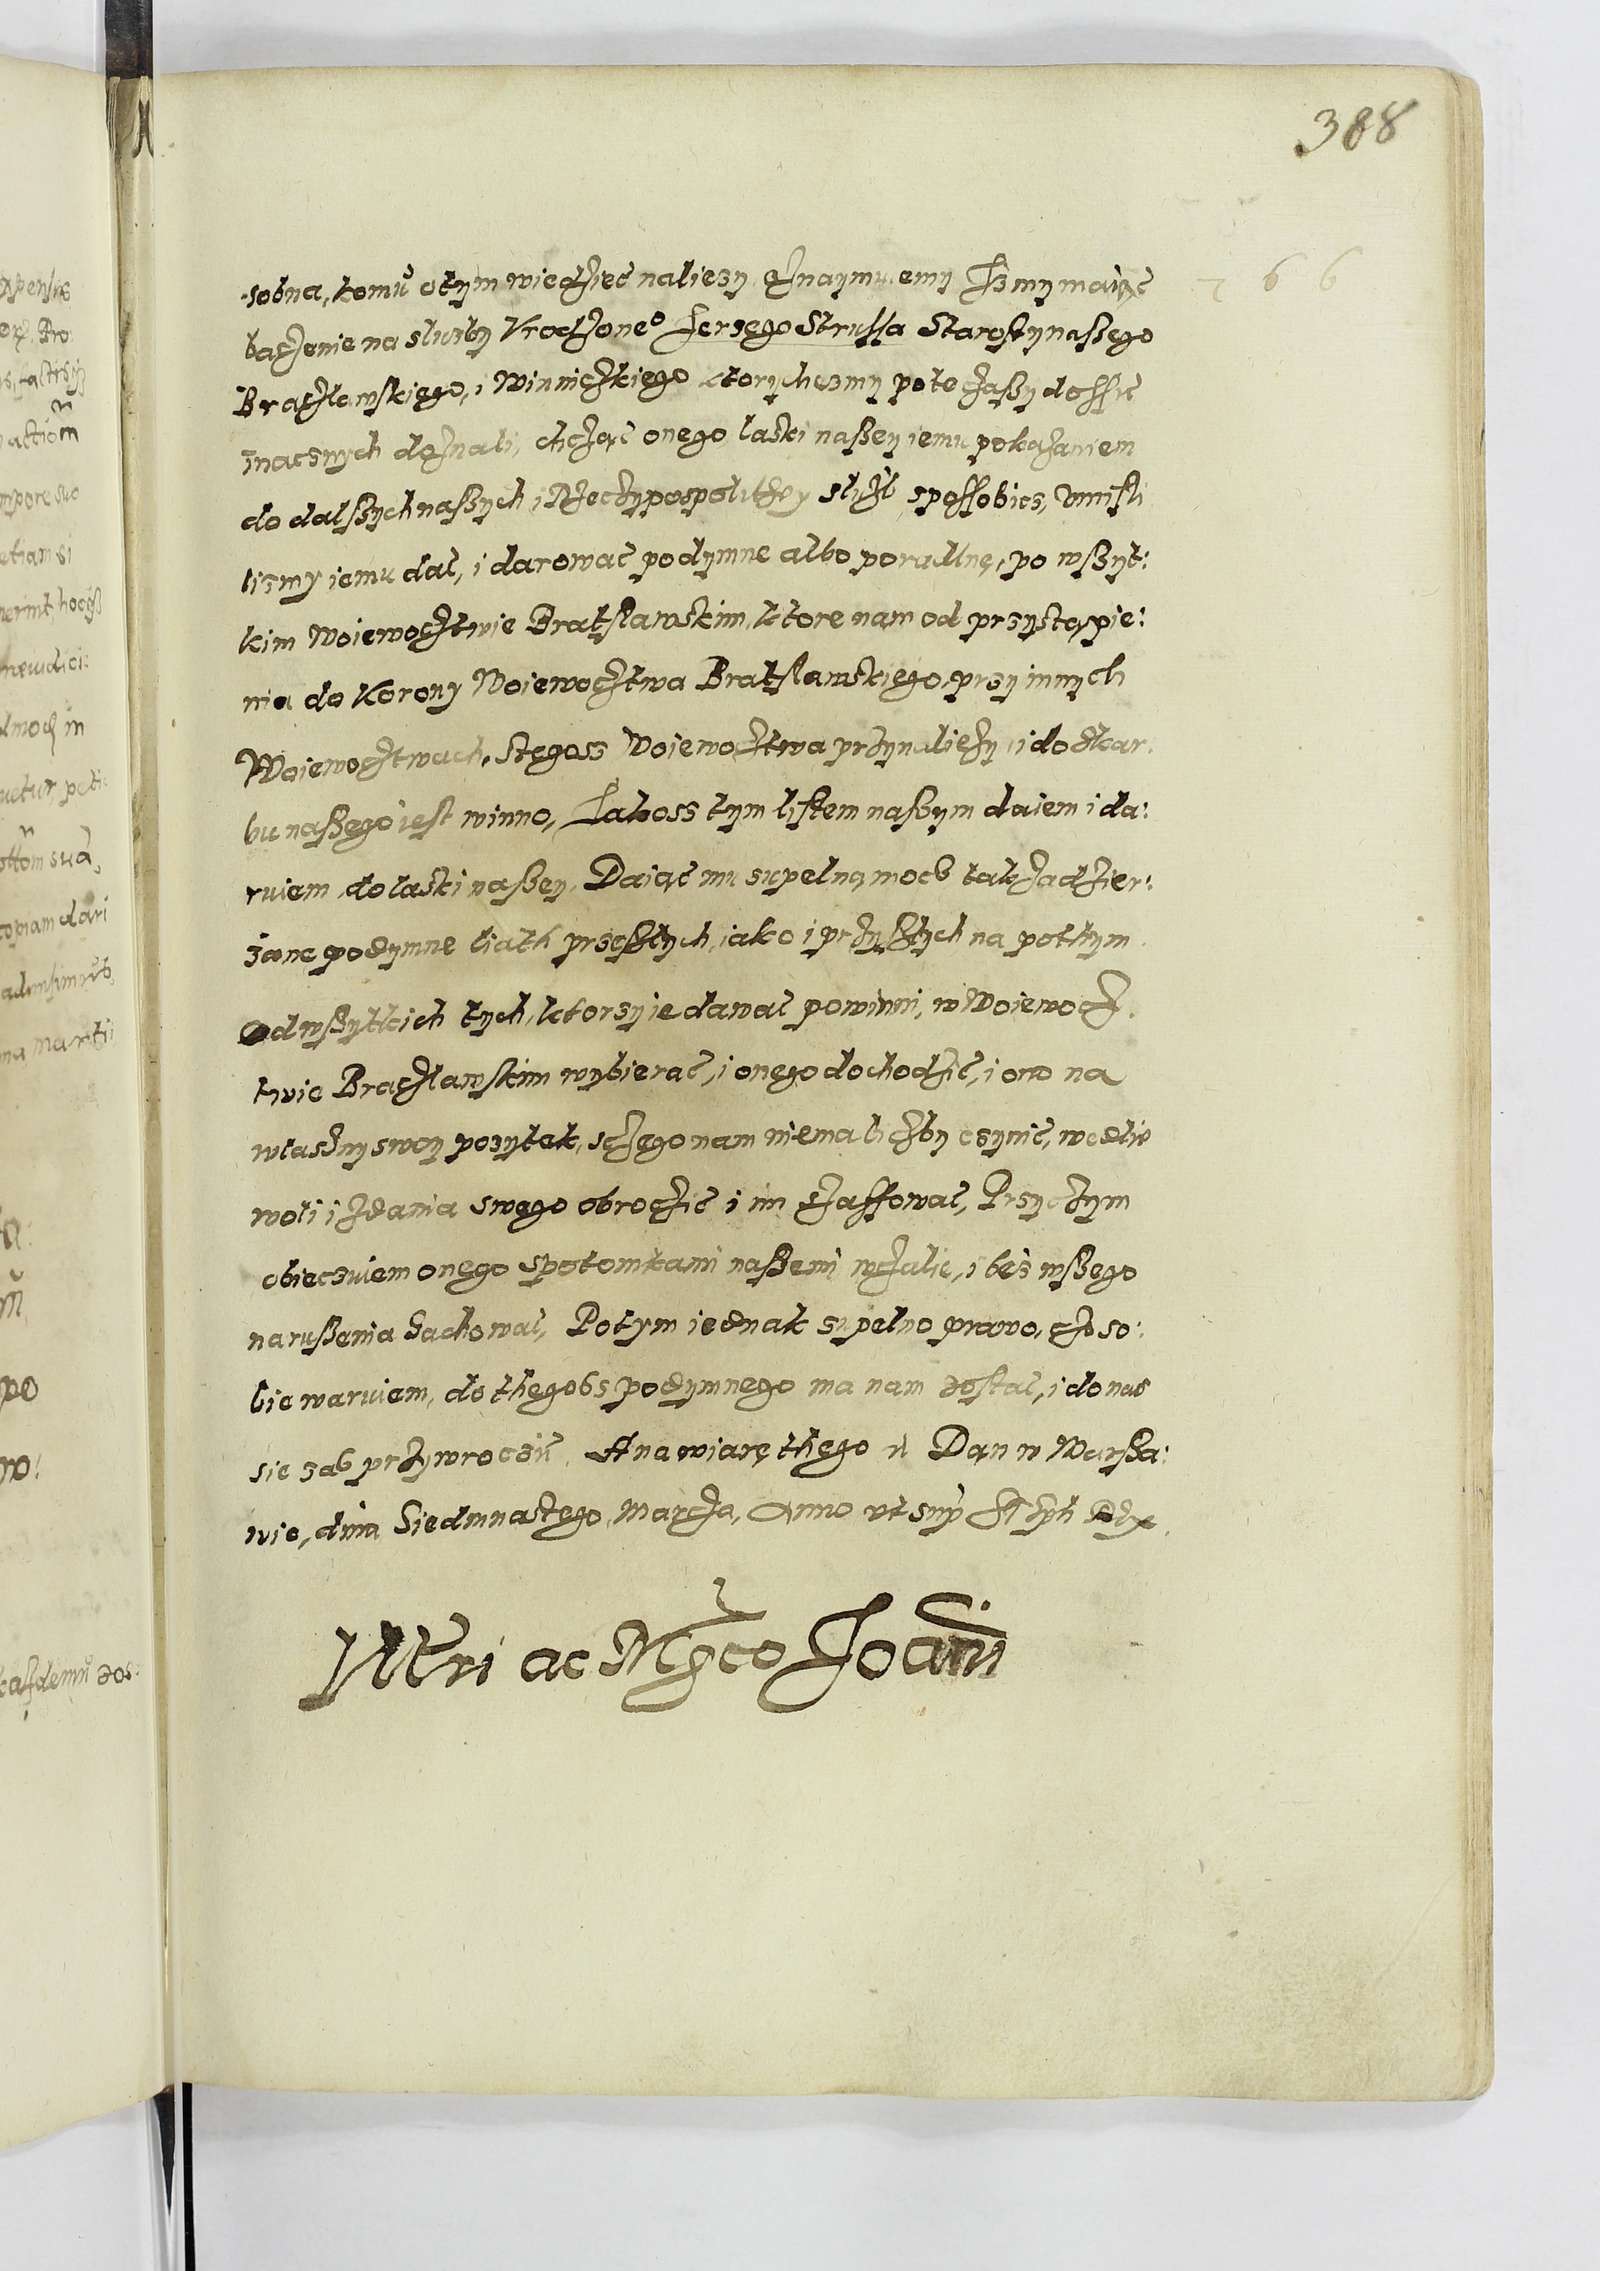 388
766
sobna, komu otym wiedziec naliezy oznaymuiemy Iz my maiąc
baczenie na sluzby Vrodzone° Ierzego Strussa Starosty naszego
Braczlawskiego, i Winniczkiego ktorychesmy po te czasy dossic
znacznych doznali, chcząc onego laski naszey iemu pokazaniem
do dalszych naszych i Rzeczypospolithey sluzb sposobicz, vmisli
lismy iemu dac, i darowac podymne albo poradlne, po wszyt:
kim Woiewocztwie Bratslawskim, ktore nam od przystąpie:
nia do Korony Woiewocztwa Bratslawskiego przy innych
Woiewocztwach, stegosz Woiewocztwa przynaliezy i do skar:
bu naszego iest winno, Iakosz tym listem naszym daiem i da:
ruiem do laski naszey. Daiąc mu zupelną mocz tak zadzier:
zane podymne liath przeszłych, iako i przyszlych na pothym
od wszytkich tych, ktorzy ie dawac powinni, w Woiewocz:
twie Braczlawskim wybierac, i onego dochodzic, i ono na
wlasny swoy pozytek, sczego nam niema liczby czynic, wedle
woli i zdania swego obroczic i im szaffowac, Przyczym
obieczuiem onego spotomkami naszemi wczalie, i bes wszego
naruszenia zachowac, Potym iednak zupelno prawo, czo so:
bie waruiem, do thegosz podymnego ma nam zostac, i do nas
sie zas przywroczic. A na wiarę thego etc Dan w Warsza:
wie, dnia Siedmnastego, Marcza, Anno vt sup
Illtri ac Mgco Joanni